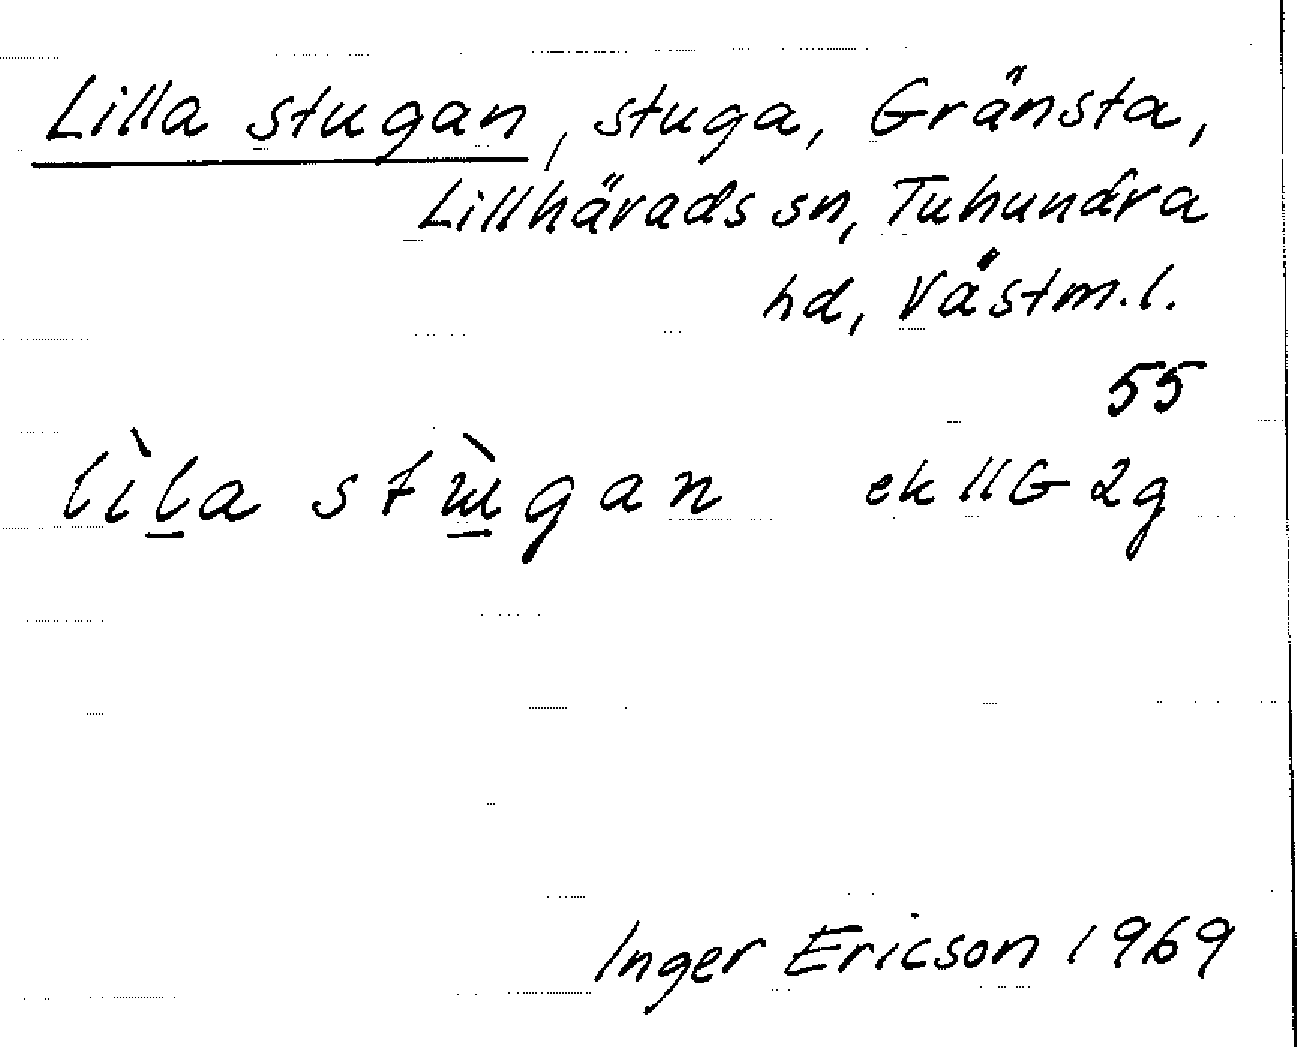 Lilla stugan, stuga, Gränsta,
Lillhärads sn, Tuhundra
hd, Västm.l.
55
lìl̲a stɯ̲̀gan ek llG 2g
Inger Ericson 1969